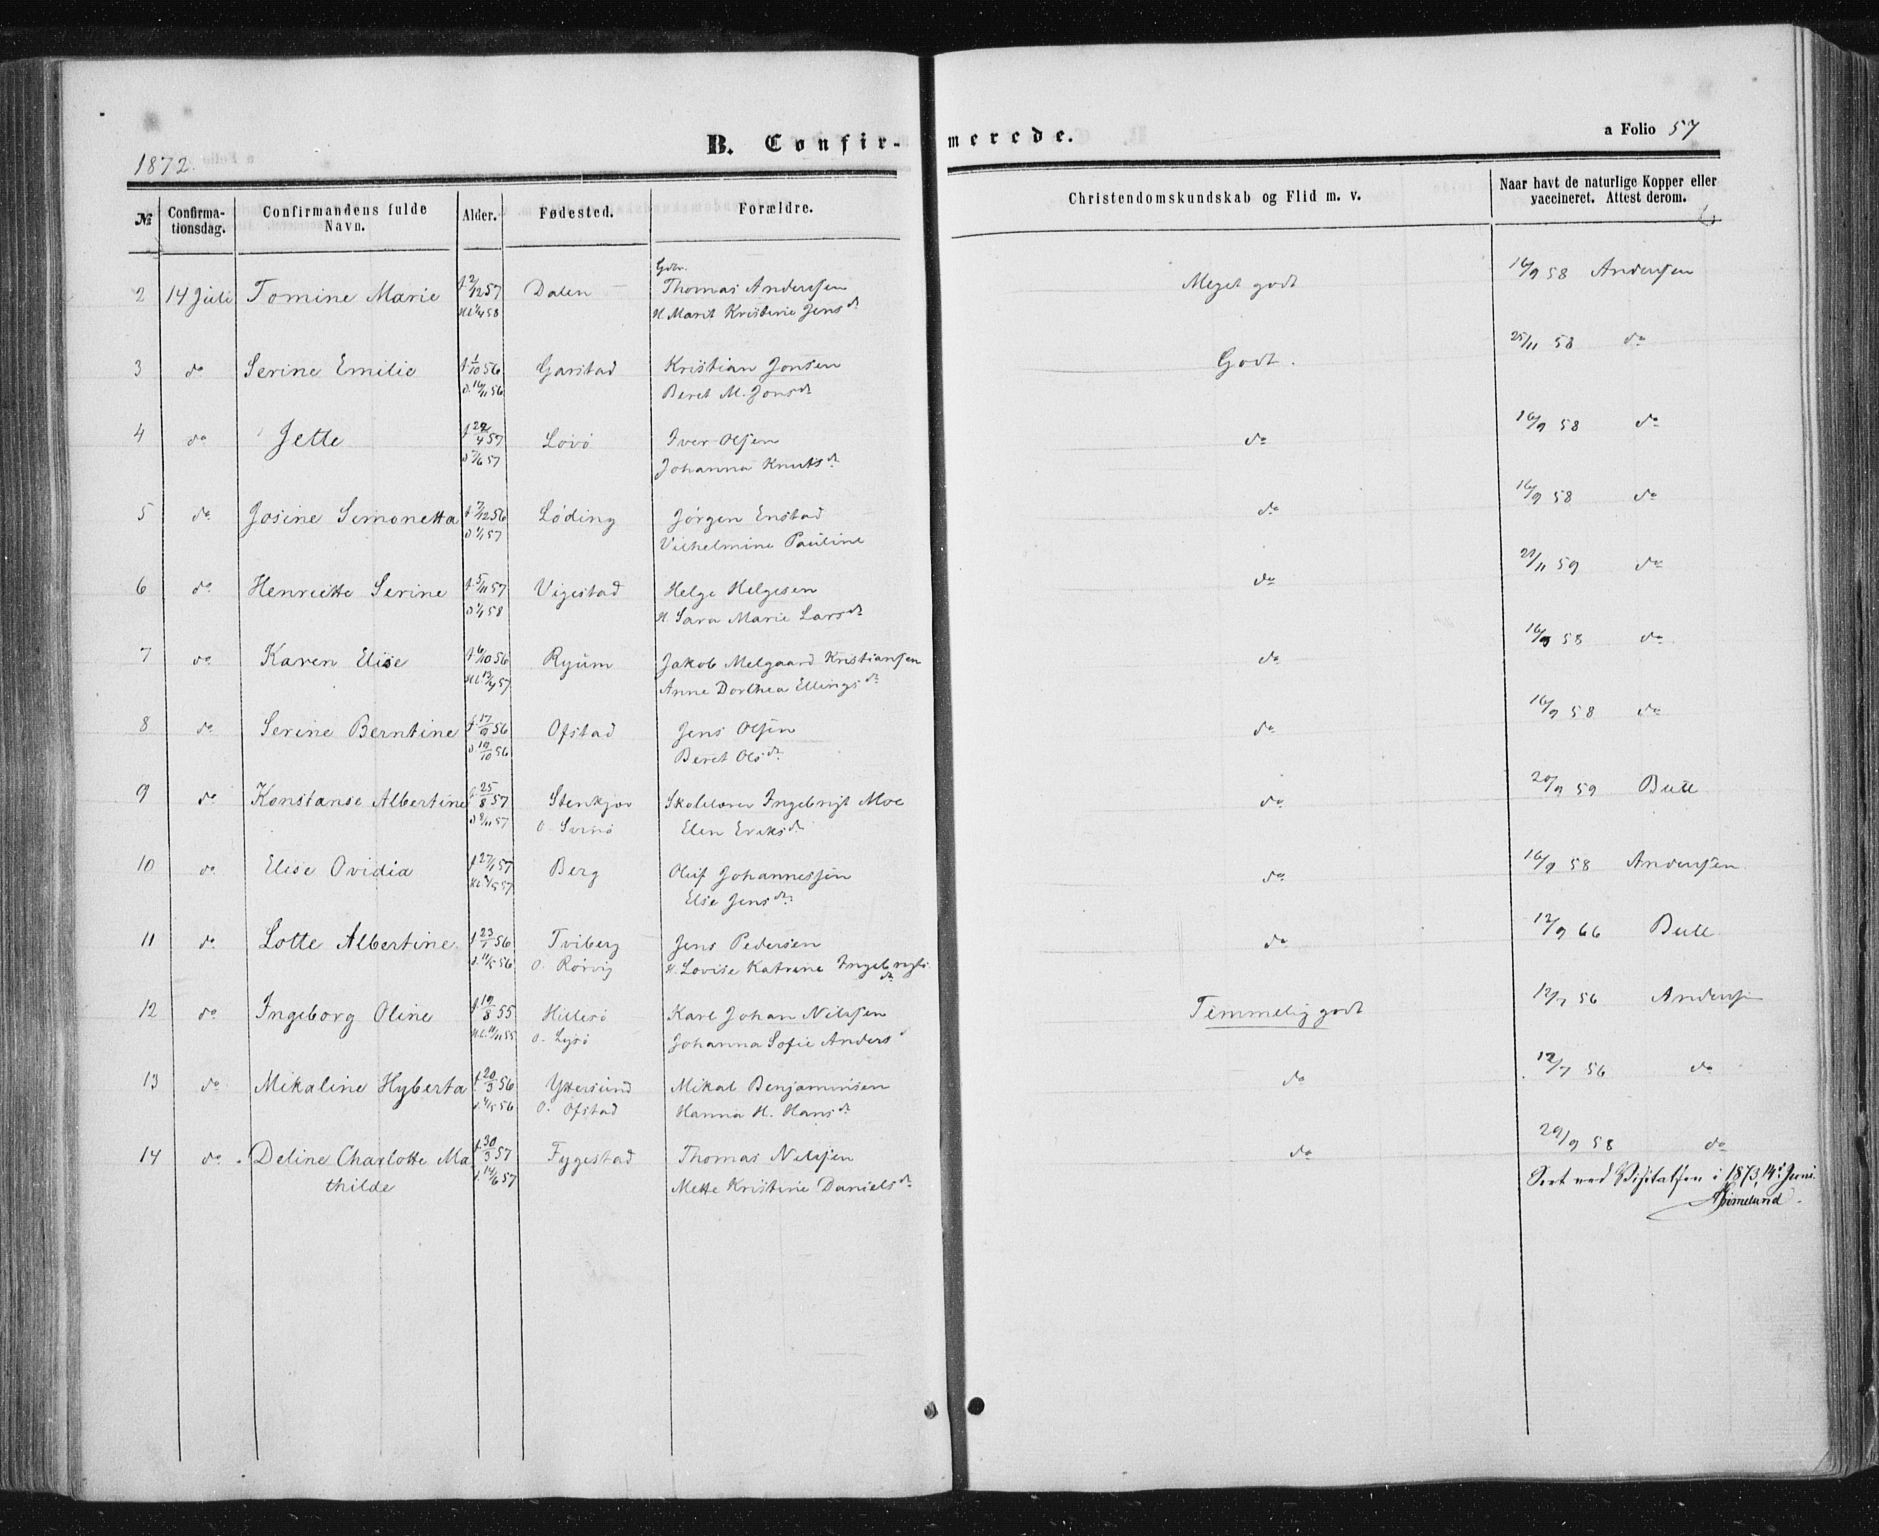 B. Confirmerede.
a Folio 57
1872.
№ Confirmationsdag. Confirmandens fulde Navn. Alder. Fødested. Forældre. Christendomskundskab og Flid m. v. Naar havt de naturlige Kopper eller vaccineret. Attest derom.
Gdbr.
2 14 Juli Tomine Marie f 2/12 57 Dalen Thomas Andersen Meget godt 16/9 58 Andersen
H. Marit Kristine Jensdr
3 do Serine Emilie f 1/10 56 Garstad Kristian Jonsen Godt. 25/11 58 do
d. 16/11 56 Beret M. Jonsdr
4 do Jette f 29/4 57 Lovø Iver Olsen do 16/9 58 do
d 7/6 57 Johanna Knutsdr
5 do Josine Simonetta f 7/12 56 Løding Jörgen Enstad do 16/9 58 do
d 1/1 57 Vilhelmine Pauline
6 do Henriette Serine f. 5/11 57 Vigestad Helge Helgesen do 21/11 59 do
d 1/1 58 H. Sara Marie Larsdr
7 do Karen Elise f 6/10 56 Ryum Jakob Melgaard Kristiansen do 16/9 58 do
Anne Dorthea Ellingsdr
8 do Serine Berntine f. 17/9 56 Ofstad Jens Olsen do 16/9 58 do
d 19/10 56 Beret Olsdr
9 do Konstanse Albertine f. 25/8 57 Stenkjær Skolelærer Ingebrigt Moe do 20/9 59 Bull
d 8/11 57 O. Svinø Elen Eriksdr
10 do Elise Ovidia f 27/1 57 Berg Oluf Johannessen do 16/9 58 Andersen
Else Jensdr
11 do Lotte Albertine f 23/1 56 Tviberg Jens Pedersen do 12/9 66 Bull
d. 11/5 56 O. Rørvig H. Lovise Katrine Ingebrigtsdr
12 do Ingeborg Oline f 19/8 55 Hillesø Karl Johan Nilssen Temmelig godt 12/7 56 Andersen
O. Lysø Johanna Sofie Andersd
13 do Mikaline Hyberta f 20/3 56 Yttersund Mikal Benjaminsen do 12/7 56 do
d. 4/5 56 O. Ofstad Hanna H. Hansdr
14 do Deline Charlotte Mathilde f. 30/3 57 Fygestad Thomas Nilssen do 20/9 58 do
d. 14/6 57 Mette Kristine Danielsdr
Seet ved Visitatsen i 1873, 14de Juni.